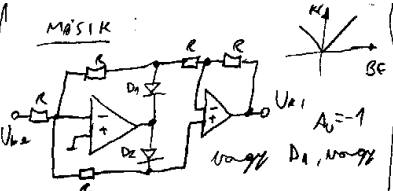 MÁSIK
KI
BE
R
R
R
R
D1
R
Ube
- +
- +
Uki
Au=-1
D2
vagy D1, vagy
R